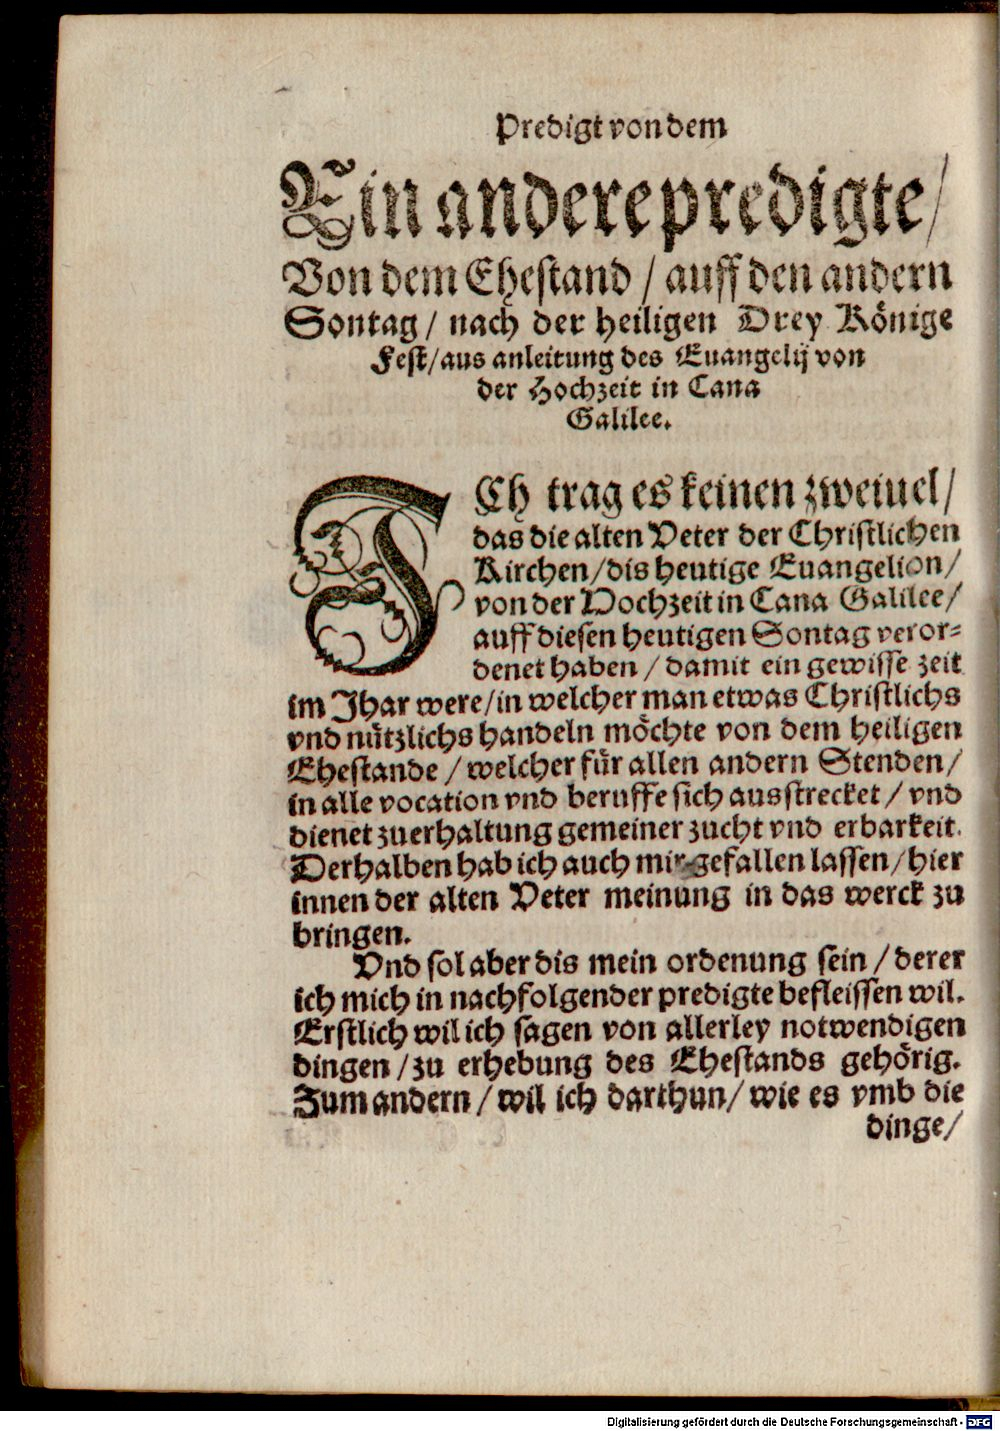 Predigt von dem
Ein andere predigte/
Von dem Ehestand / auff den andern
Sontag / nach der heiligen Drey Könige
Fest/aus anleitung des Euangelij von
der Hochzeit in Cana
Galilee.
ICh trag es keinen zweiuel/
das die alten Veter der Christlichen
Kirchen/dis heutige Euangelion/
von der Hochzeit in Cana Galilee/
auff diesen heutigen Sontag veror=
denet haben / damit ein gewisse zeit
im Jhar were/in welcher man etwas Christlichs
vnd nützlichs handeln möchte von dem heiligen
Ehestande / welcher für allen andern Stenden/
in alle vocation vnd beruffe sich ausstrecket / vnd
dienet zuerhaltung gemeiner zucht vnd erbarkeit.
Derhalben hab ich auch mir gefallen lassen/hier
innen der alten Veter meinung in das werck zu
bringen.
Vnd sol aber dis mein ordenung sein / derer
ich mich in nachfolgender predigte befleissen wil.
Erstlich wil ich sagen von allerley notwendigen
dingen / zu erhebung des Ehestands gehörig.
Zum andern / wil ich darthun/ wie es vmb die
dinge/
Digitalisierung gefördert durch die Deutsche Forschungsgemeinschaft - DFG